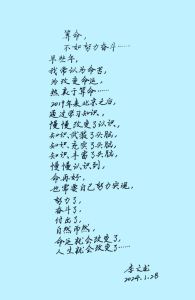 算命,
不如努力奋斗……
早些年,
我常认为命苦,
为改变命运,
热衷于算命……
2019年来北京之后,
通过学习知识、
慢慢改变了认识,
知识武装了头脑,
知识充实了头脑,
知识丰富了头脑,
慢慢认识到,
命再好,
也需要自己努力实现,
努力了,
奋斗了,
付出了,
自然而然,
命运就会改变了,
人生就会改变了……
2024.1.28